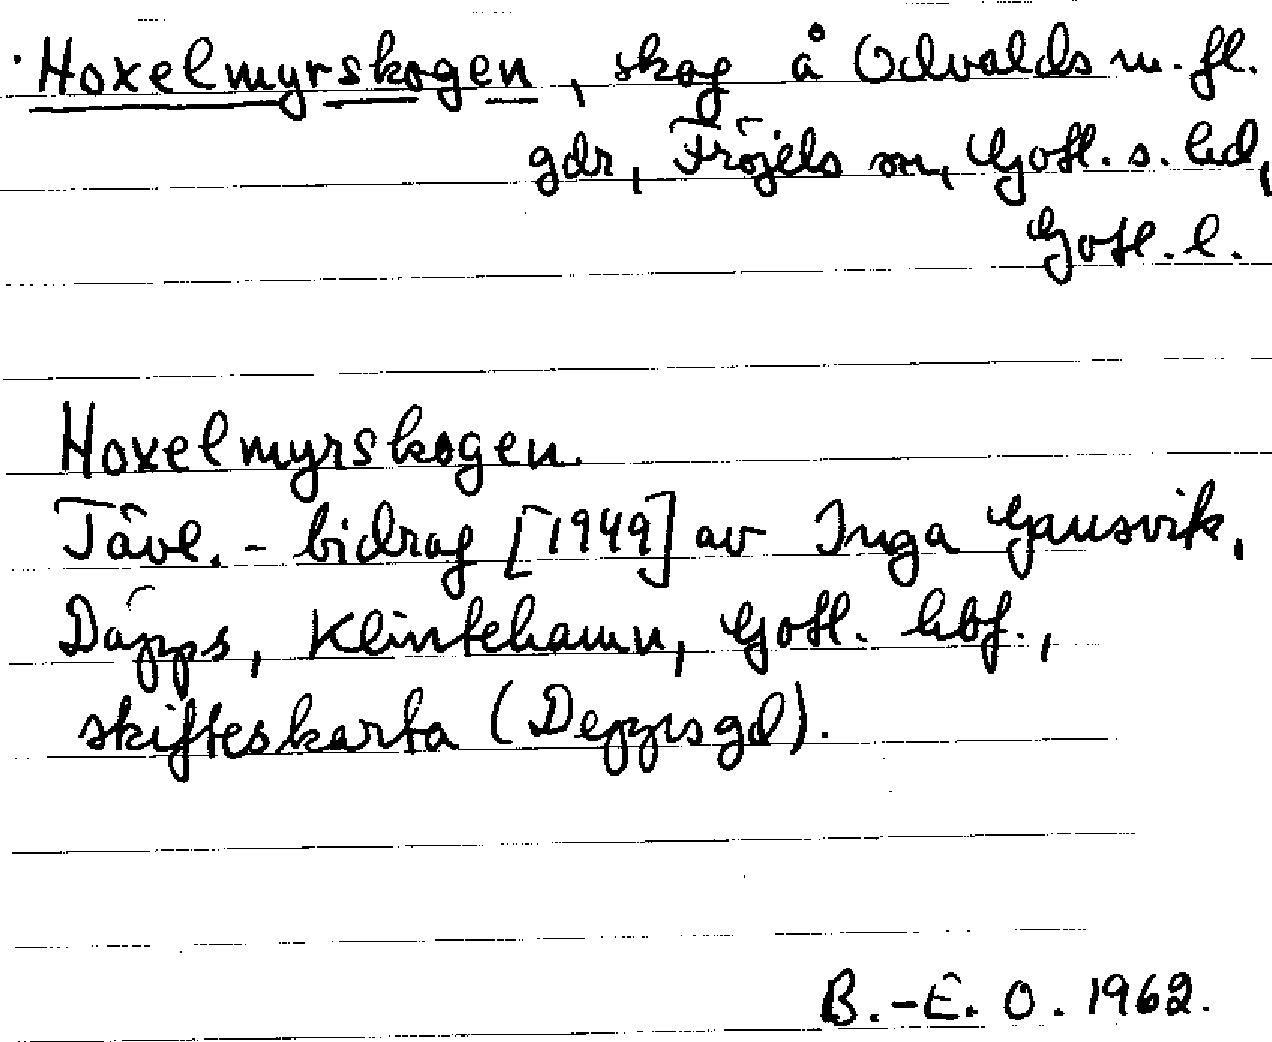 Hoxelmyrskogen, skog å Odvalds m.fl.
gdr, Fröjels sn, Gotl. s. hd,
Gotl. l.
Hoxelmyrskogen
Tävl.-bidrag [1949] av Inga Gausvik,
Däpps, Klintehamn, Gotl. hbf.,
skifteskarta (Deppsgd).
B.-E. O. 1962.